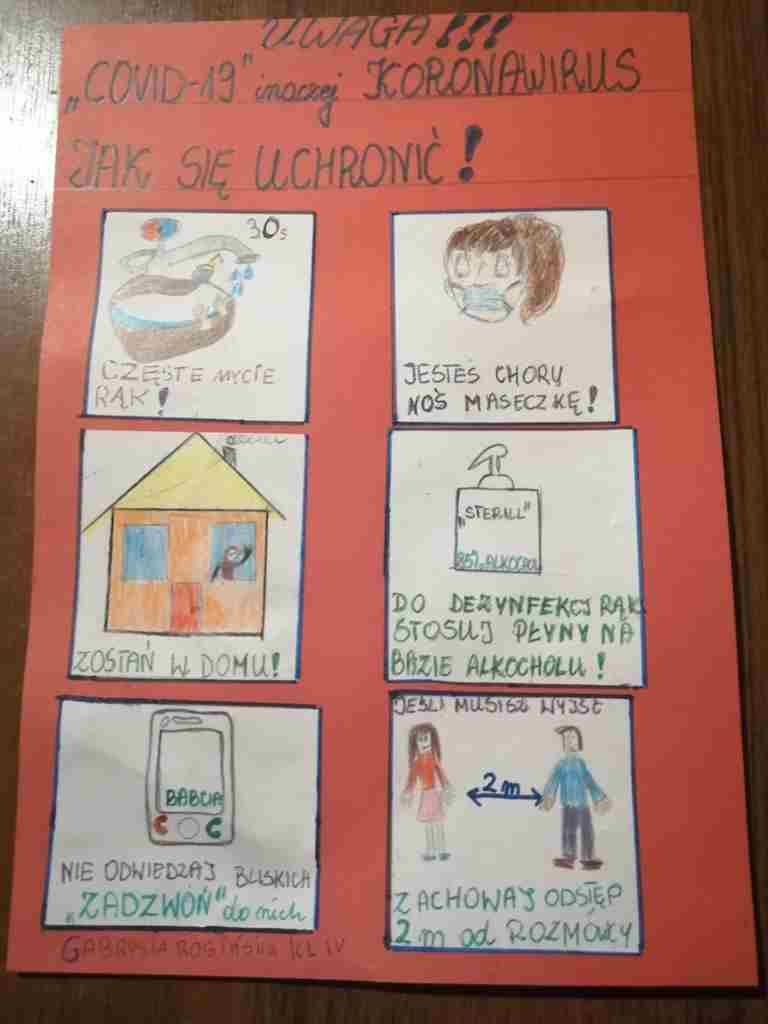 UWAGA!!!
„COVID-19" inaczej KORONAWIRUS
JAK SIĘ UCHRONIĆ!
30s
CZĘSTE MYCIE
RĄK!
JESTEŚ CHORY
NOŚ MASECZKĘ!
ZOSTAŃ W DOMU!
„STERILL"
85% ALKOCHOL
DO DEZYNFEKCJ RĄK
STOSUJ PŁYNY NA
BAZIE ALKOCHOLU!
BABCIA
NIE ODWIEDZAJ BLISKICH
„ZADZWOŃ" do nich
JEŚLI MUSISZ WYJŚĆ
2m
ZACHOWAJ ODSTĘP
2m od ROZMÓWCY
GABRYSIA ROGIŃSKA KL IV